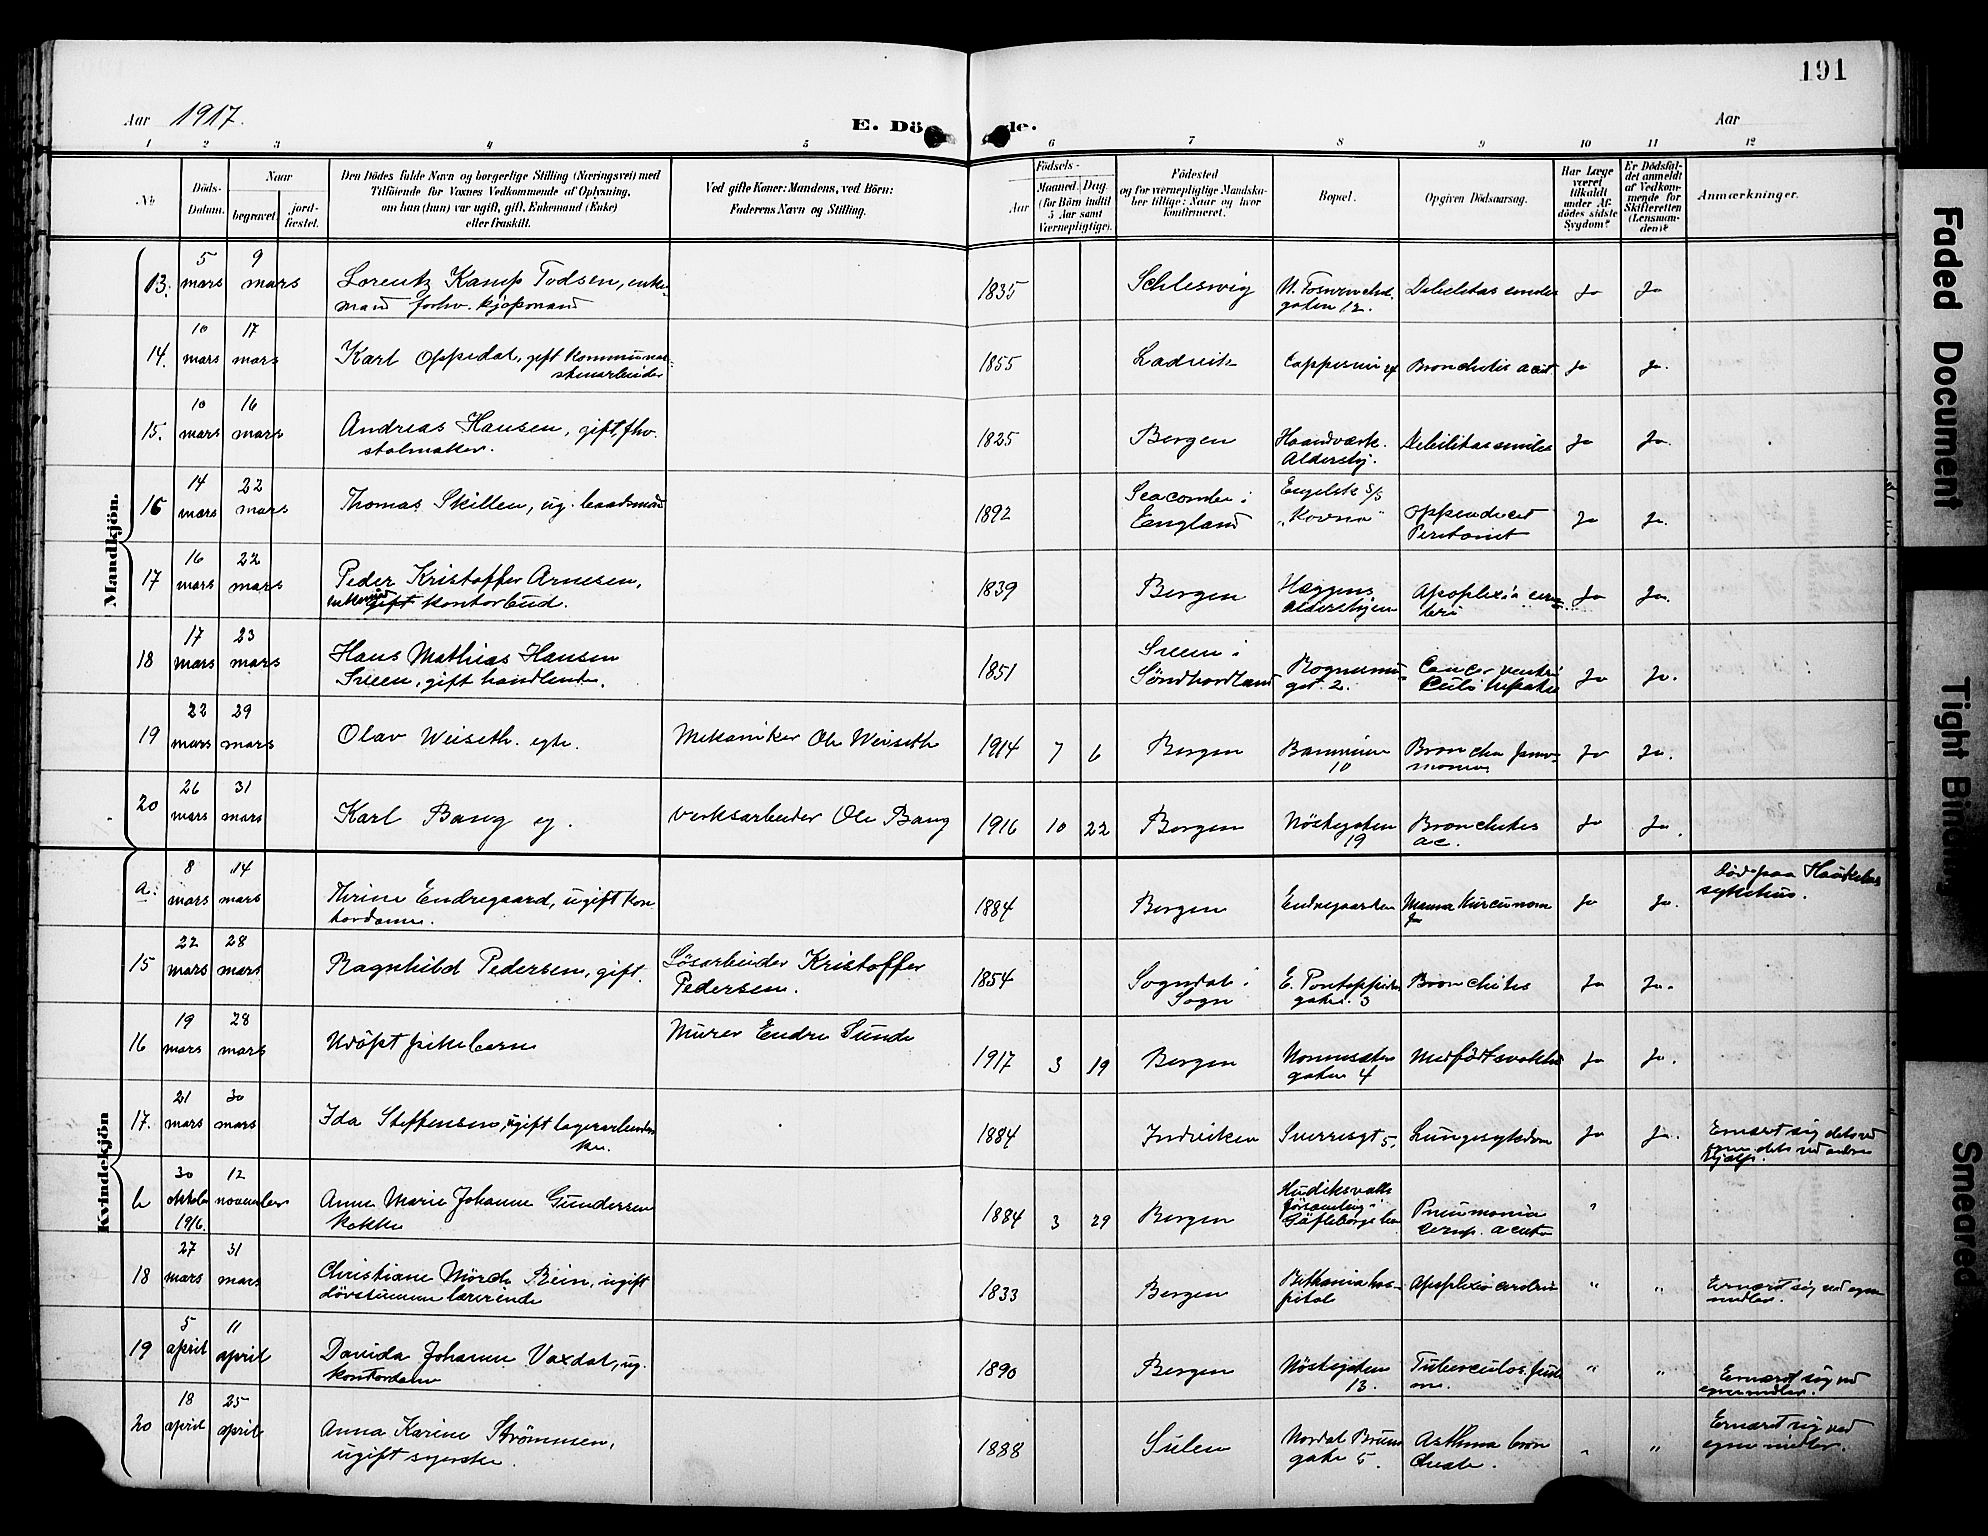 191
Aar 1917.
E. Dö de.
Aar
1 2 3 4 5 6 7 8 9 10 11 12
No
Döds-
Datum.
Naar
begravet.
jord-
fæstet.
Den Dödes fulde Navn og borgerlige Stilling (Næringsvei) med
Tilföiende for Voxnes Vedkommende af Oplysning,
om han (hun) var ugift, gift, Enkemand (Enke)
eller fraskilt.
Ved gifte Koner: Mandens, ved Börn:
Faderens Navn og Stilling.
Födsels-
Aar
Maaned. Dag.
(for Börn indtil
5 Aar samt
Værnepligtige).
Födested
og for værnepligtige Mandskaber
tillige: Naar og hvor
konfirmeret.
Bopæl.
Opgiven Dödsaarsag.
Har Læge
været
tilkaldt
under Af-
dödes sidste
Sygdom?
Er Dödsfal-
det anmeldt
af Vedkom-
mende for
Skifteretten
(Lensman-
den)?
Anmærkninger.
Mandkjön.
13. 5 mars 9 mars Lorentz Kamp Todsen, enke-
mand forhv. kjøpmand 1835 Schleswig gaten 12. Debilitas senilis Ja Ja
14. 10 mars 17 mars Karl Oppedal, gift kommunal-
1855 Ladvik Bronchitis acut Ja Ja.
15. 10 mars 16 mars Andreas Hansen, gift, fhv.
stolmaker. 1825 Bergen Haandværk.
Aldershj. Debilitas senilis Ja Ja.
16 14 mars 22 mars Thomas Skillen, ug. baadsmand 1892 Seacombe i
England Engelsk S/S
"Kovno" Appendicit
Peritonit Ja Ja.
17 16 mars 22 mars Peder Kristoffer Arnesen,
enkemand gift kontorbud. 1839 Bergen Hæggens
Aldershjem Apoplexia cere-
bri Ja Ja.
18 17 mars 23 mars Hans Mathias Hansen
Sveen, gift handlende. 1851 Sveen i
Söndhordland gt. 2. Cancer ventri
culi hepatis Ja Ja.
19 22 mars 29 mars Olav Weiseth. egte. Mekaniker Ole Weiseth 1914 7 6 Bergen 10 Broncho pneu-
monia Ja Ja.
20 26 mars 31 mars Karl Bang eg. Verksarbeider Ole Bang 1916 10 22 Bergen Nöstegaten
19 Bronchitis
ac. Ja Ja.
Kvindekjön
a. 8 mars 14 mars Thrine Endregaard, ugift kon-
tordame. 1884 Bergen Endregaarden Ja Ja. Död paa Haukeland
sykehus.
15 22 mars 28 mars Ragnhild Pedersen, gift. Løsarbeider Kristoffer
Pedersen. 1854 Sogndal i
Sogn E. Pontoppidan
gaten. 3 Bronchitis Ja Ja.
16 19 mars 28 mars Udöpt pikebarn Murer Endre Sunde 1917 3 19 Bergen Nonneseter
gaten 4 Medfödt svakhet Ja Ja.
17. 21 mars 30 mars Ida Steffensen, ugift lagerarbeiders
ke. 1884 Indviken Sverresgt 5. Lungesykdom Ja Ja. Ernært sig dels ved
egne dels ved andres
hjælp.
b 30 oktober 1916. 12 november Anne Marie Johanne Gundersen
kokke 1884 3 29 Bergen Hudiksvalls
församling i
Gäfleborgs län Pneumonia
crup. acuta "
18 27 mars 31 mars Christiane Mörch Bein, ugift
dövstumme lærerinde 1833 Bergen Bethania hos-
pital Apoplexia cerebri " " Ernært sig ved egne
midler.
19 5 april 11 april Davida Johanne Vaxdal, ug.
kontordame 1890 Bergen Nöstegaten
13. " " Ernært sig ved
egne midler.
20 18 april 25 april Anna Karine Strömmen,
ugift syerske. 1888 Sulen Nordal Bruns
gate 5. Asthma bron
chiale. " " Ernært sig ved
egne midler.
Faded Document
Tight Binding
Smeared